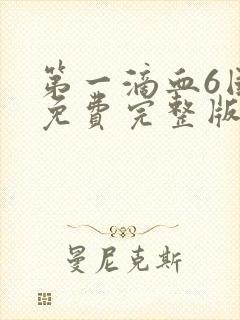 第一滴血6国
免费完整版
曼尼克斯